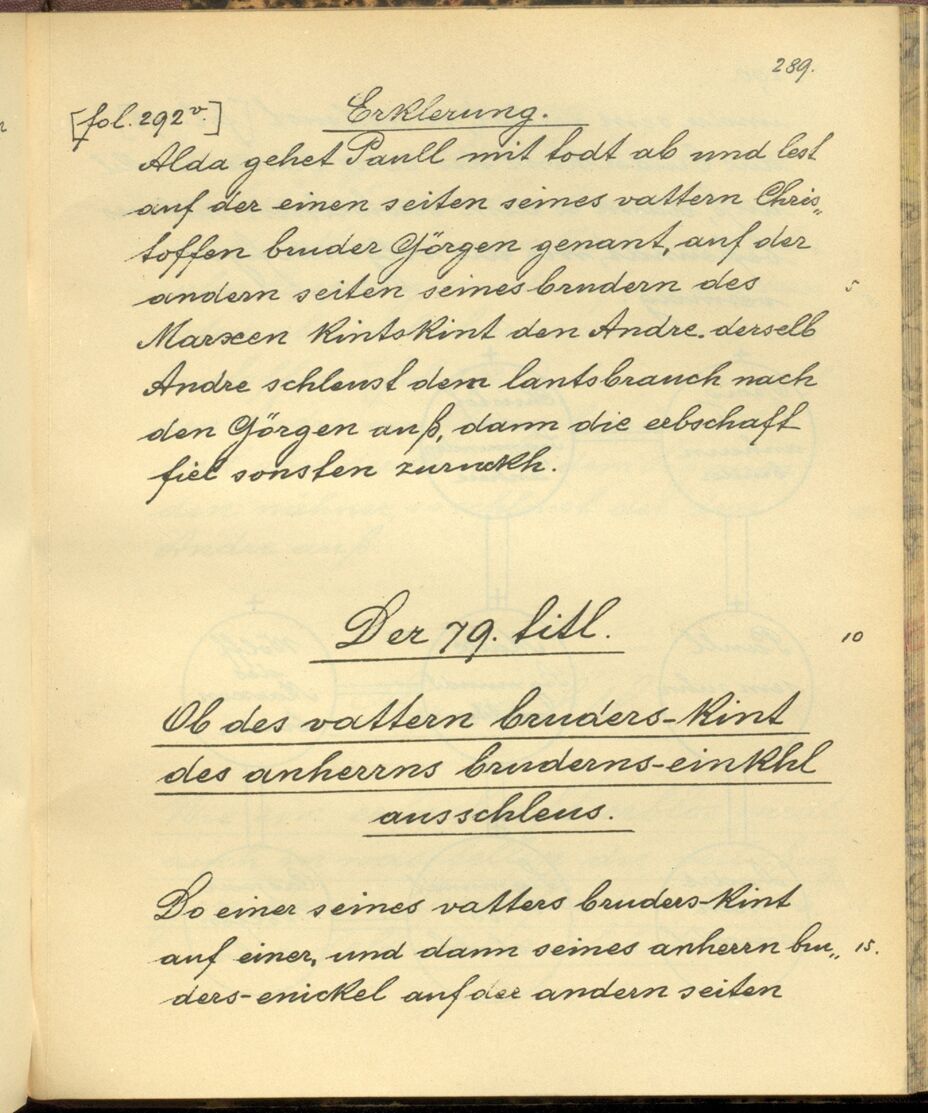 289.
[fol. 292v.]
Erklerung.
Alda gehet Paull mit todt ab und lest
auf der einen seiten seines vattern Chris„
toffen bruder Görgen genant, auf der
andern seiten seines brudern des
5
Marxen kintskint den Andre. derselb
Andre schleust dem lantsbrauch nach
den Görgen auß, dann die erbschaft
fiel sonsten zuruckh.
Der 79. titl.
10
Ob des vattern bruders-kint
des anherrns bruderns-einkhl
ausschleus.
Do einer seines vatters bruders-kint
auf einer, und dann seines anherrn bru„
15.
ders-enickel auf der andern seiten